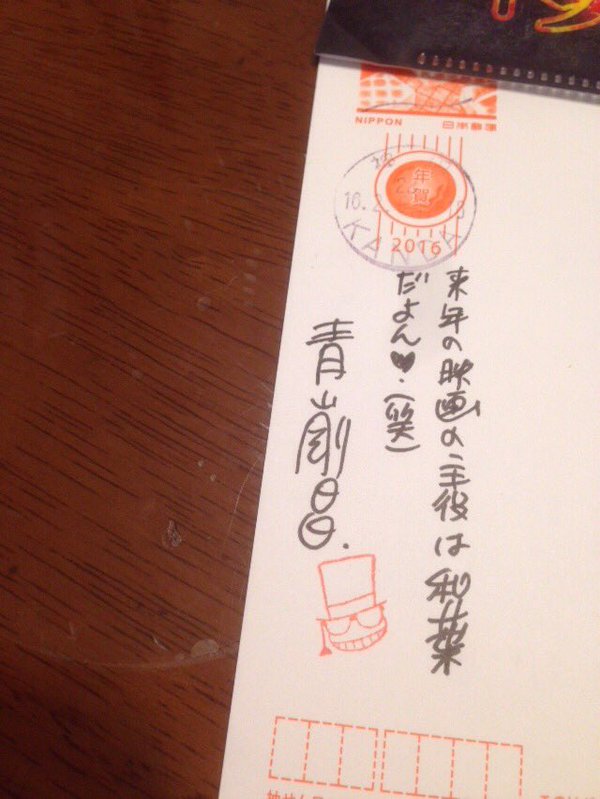 NIPPON 日本郵便
年賀
KANDA
2016
来年の映画の主役は和葉
だよん♥(笑)
青山剛昌.